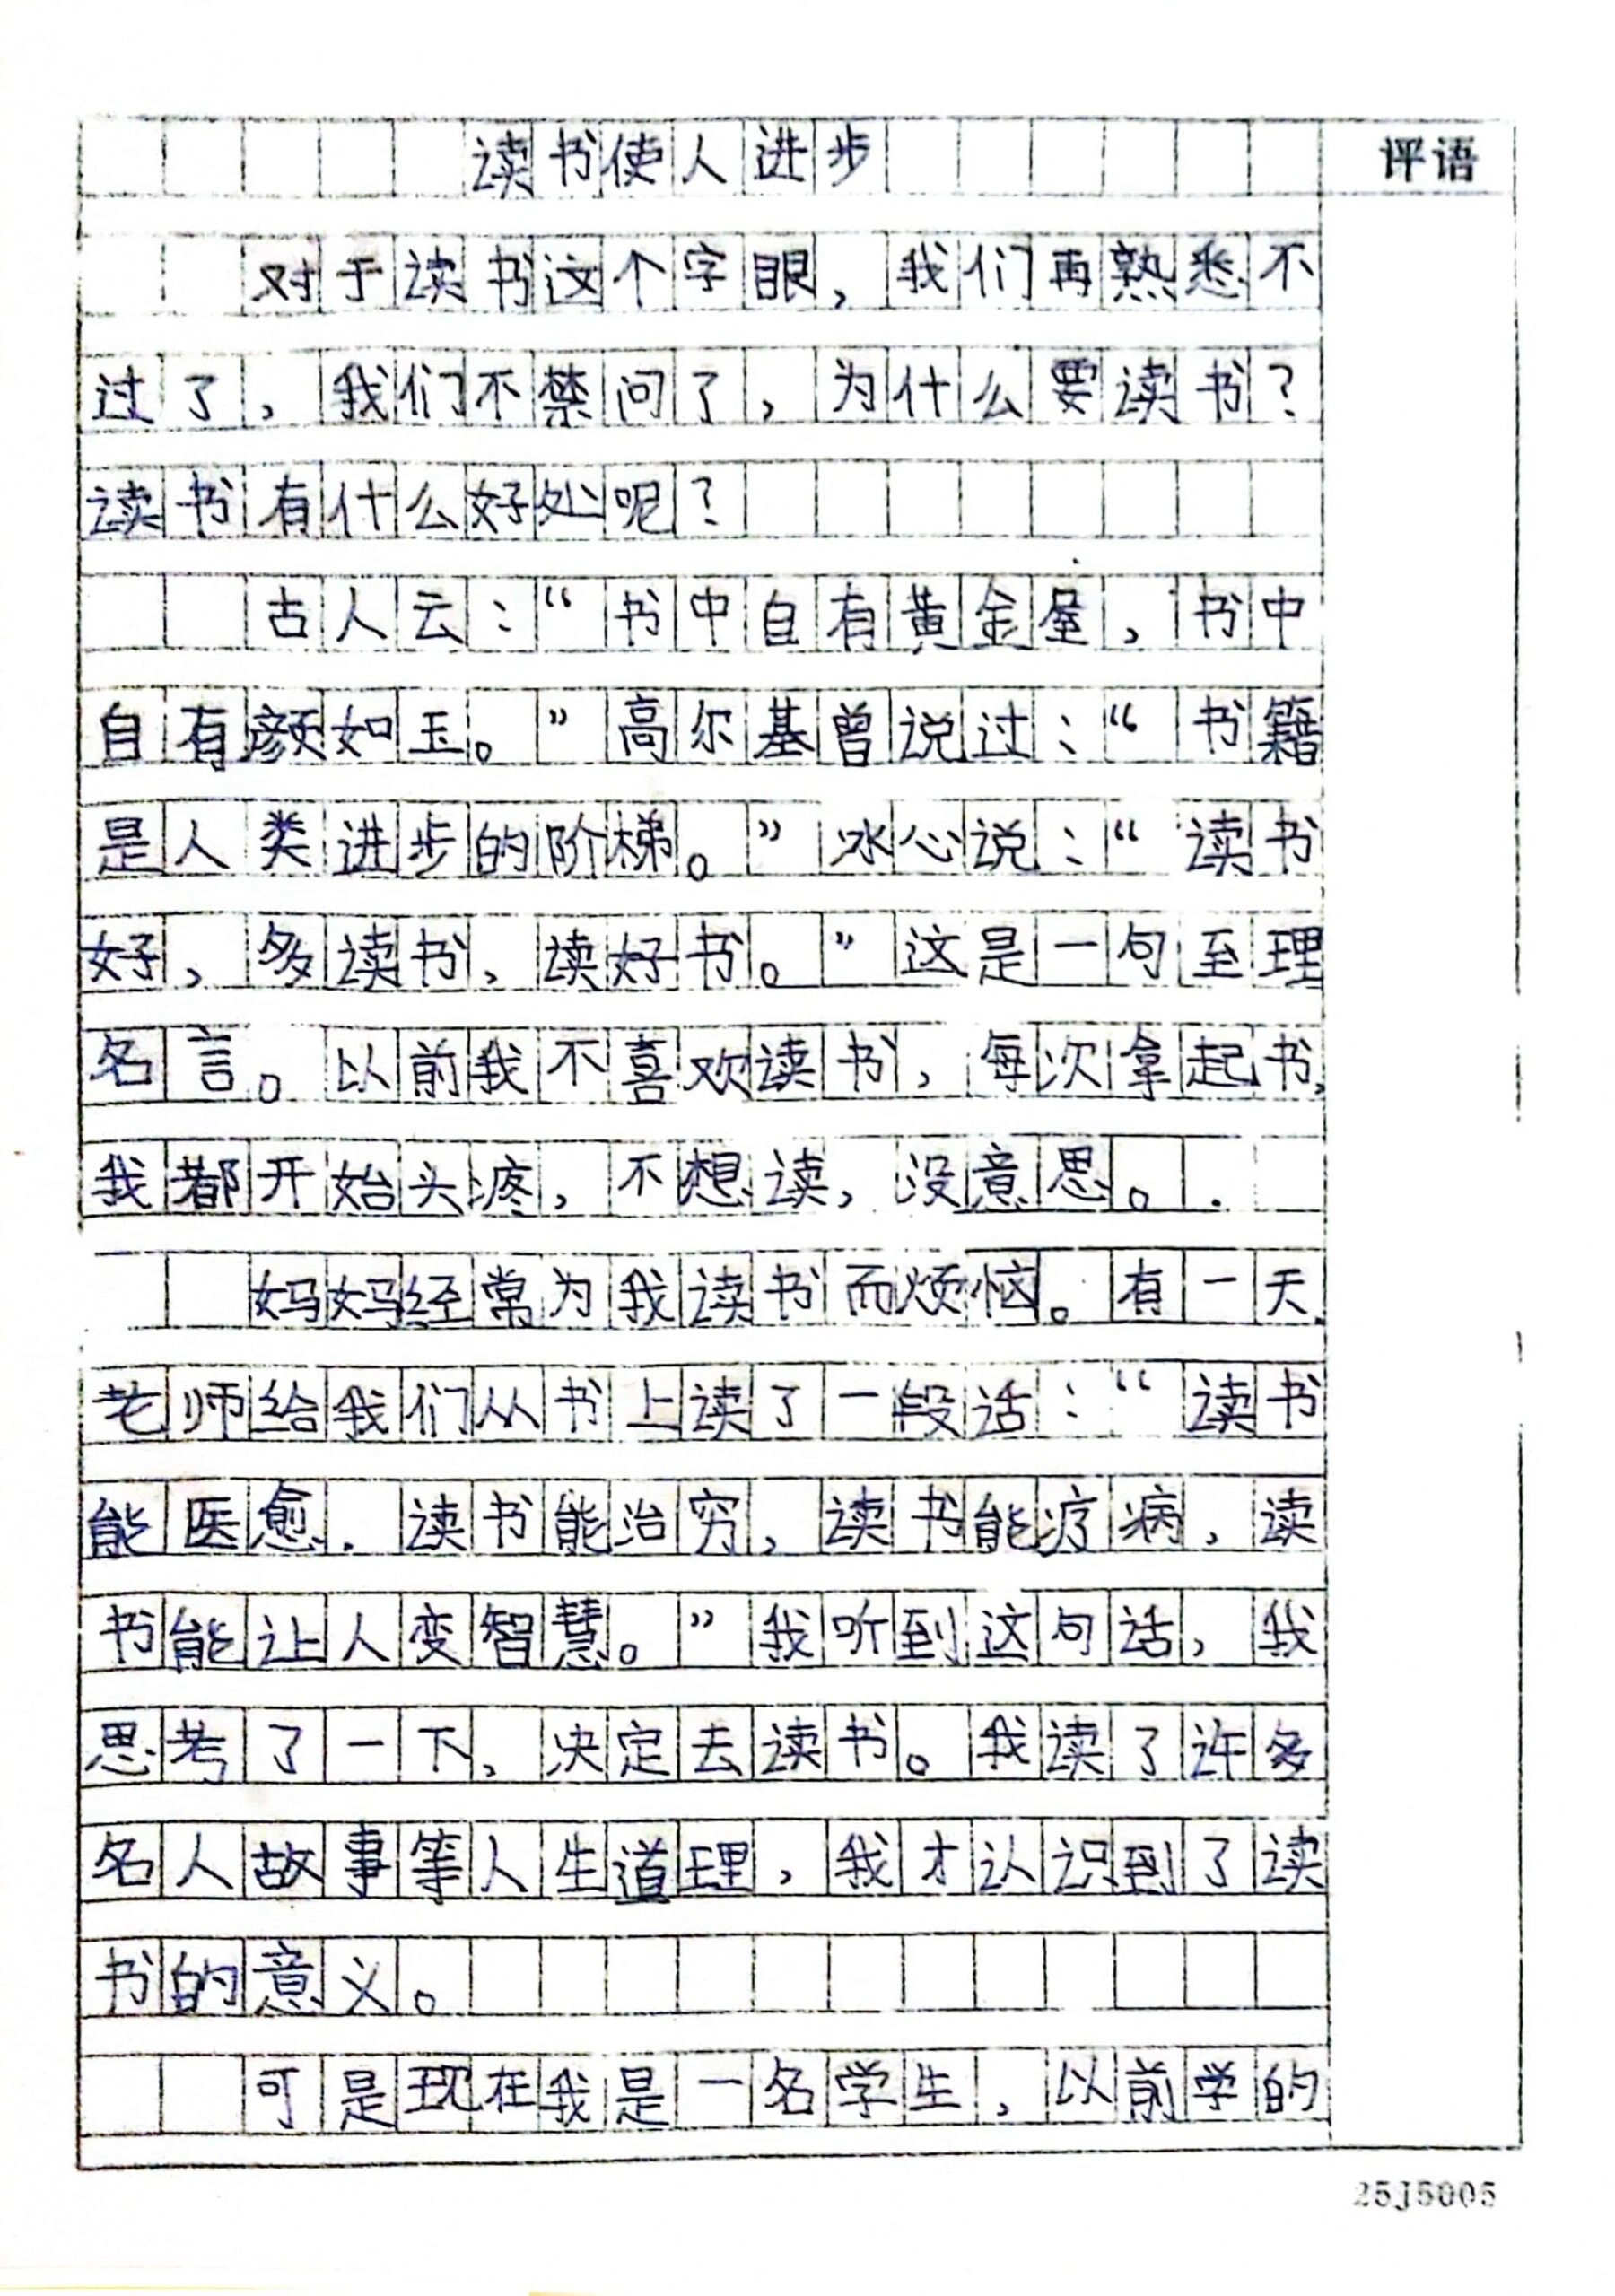 读书使人进步
评语
对于读书这个字眼，我们再熟悉不
过了，我们不禁问了，为什么要读书？
读书有什么好处呢？
古人云：“书中自有黄金屋，书中
自有颜如玉。”高尔基曾说过：“书籍
是人类进步的阶梯。”冰心说：“读书
好，多读书，读好书。”这是一句至理
名言。以前我不喜欢读书，每次拿起书，
我都开始头疼，不想读，没意思。
妈妈经常为我读书而烦恼。有一天，
老师给我们从书上读了一段话：“读书
能医愈，读书能治穷，读书能疗病，读
书能让人变智慧。”我听到这句话，我
思考了一下，决定去读书。我读了许多
名人故事等人生道理，我才认识到了读
书的意义。
可是现在我是一名学生，以前学的
25J5005